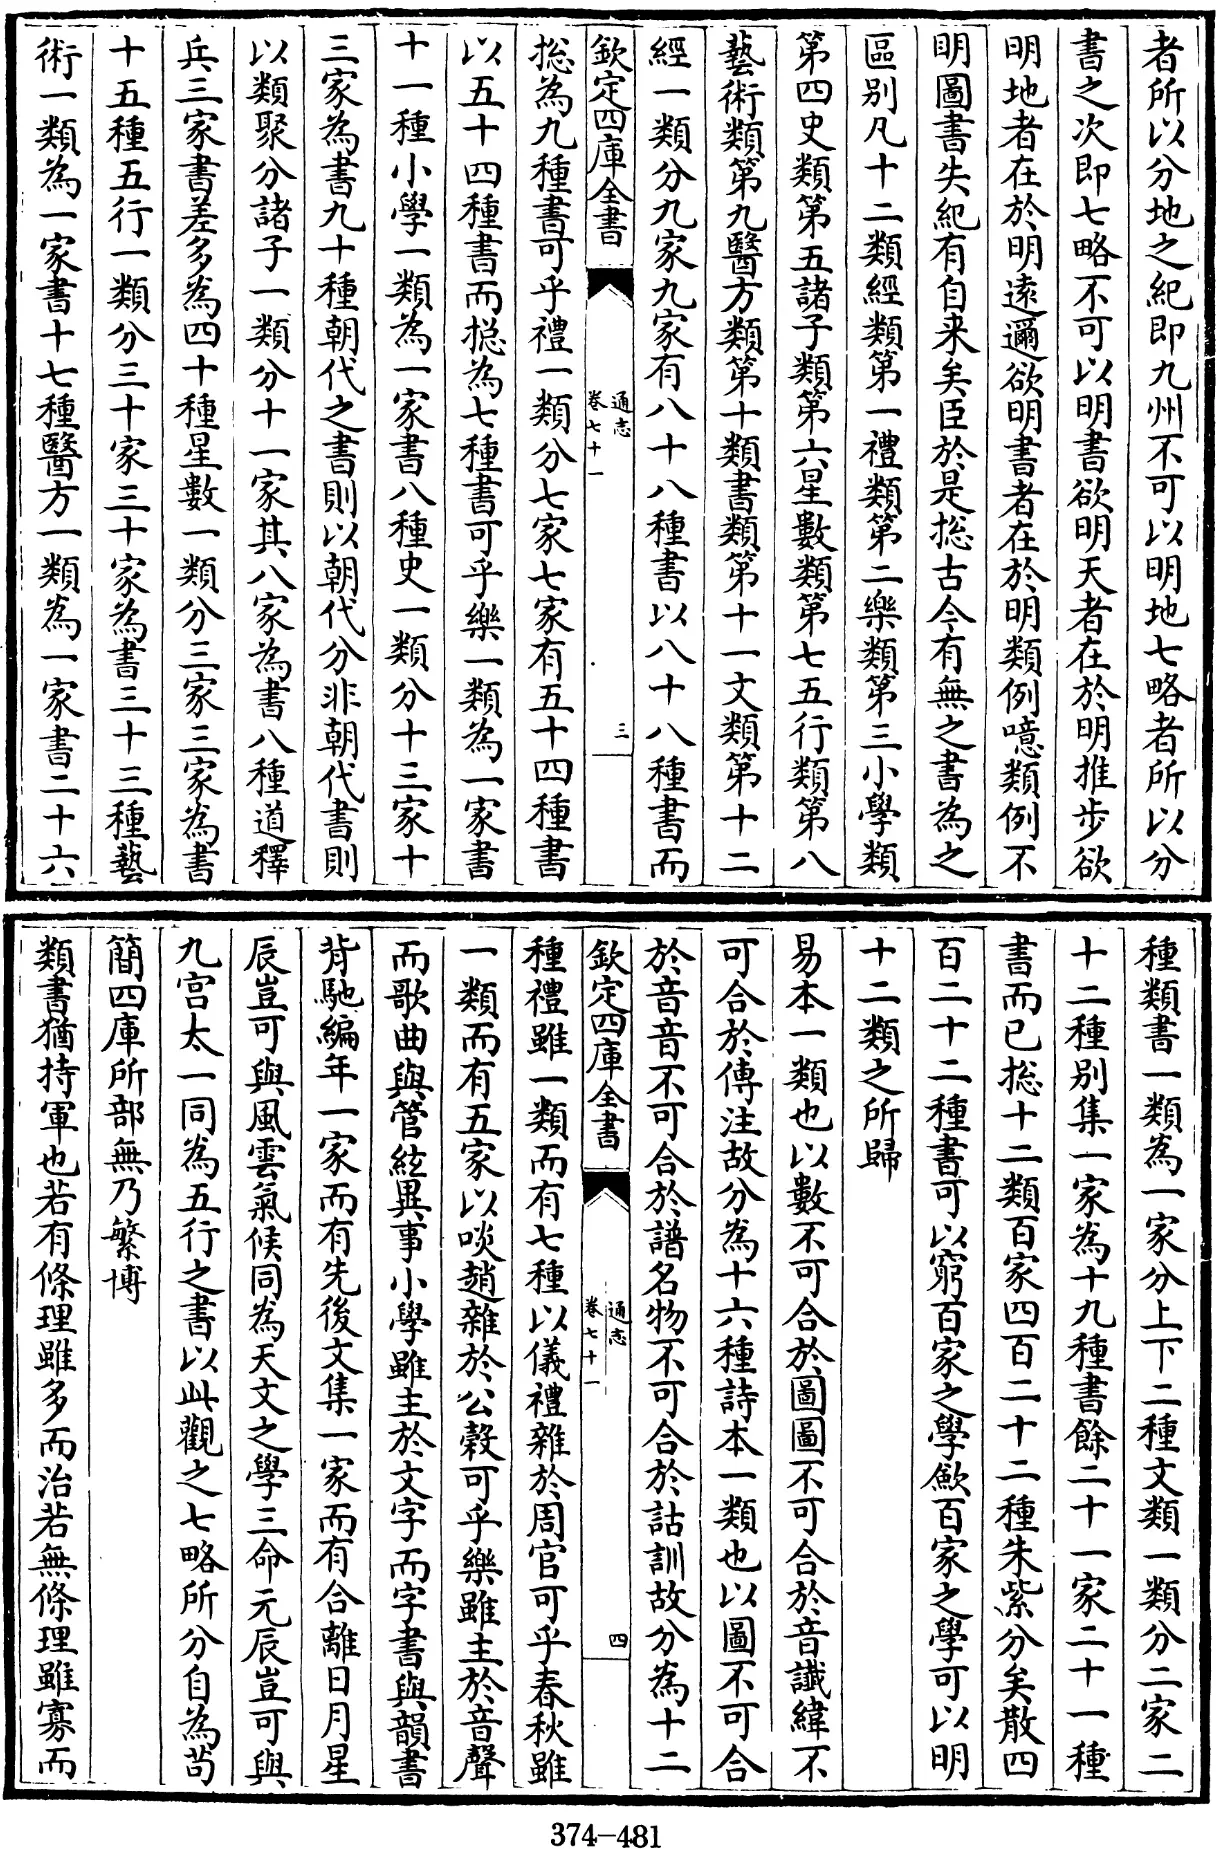 者所以分地之紀即九州不可以明地七略者所以分
書之次即七略不可以明書欲明天者在於明推步欲
明地者在於明逺邇欲明書者在於明類例噫類例不
明圖書失紀有自来矣臣於是揔古今有無之書為之
區别凡十二類經類第一禮類第二樂類第三小學類
第四史類第五諸子類第六星數類第七五行類第八
藝術類第九醫方類第十類書類第十一文類第十二
經一類分九家九家有八十八種書以八十八種書而
欽定四庫全書
通志
卷七十一
三
揔為九種書可乎禮一類分七家七家有五十四種書
以五十四種書而揔為七種書可乎樂一類為一家書
十一種小學一類為一家書八種史一類分十三家十
三家為書九十種朝代之書則以朝代分非朝代書則
以類聚分諸子一類分十一家其八家為書八種道釋
兵三家書差多為四十種星數一類分三家三家為書
十五種五行一類分三十家三十家為書三十三種藝
術一類為一家書十七種醫方一類為一家書二十六
種類書一類為一家分上下二種文類一類分二家二
十二種别集一家為十九種書餘二十一家二十一種
書而已揔十二類百家四百二十二種朱紫分矣散四
百二十二種書可以窮百家之學斂百家之學可以明
十二類之所歸
易本一類也以數不可合於圖圖不可合於音讖緯不
可合於傳注故分為十六種詩本一類也以圖不可合
於音音不可合於譜名物不可合於詁訓故分為十二
欽定四庫全書
通志
卷七十一
四
種禮雖一類而有七種以儀禮雜於周官可乎春秋雖
一類而有五家以啖趙雜於公穀可乎樂雖主於音聲
而歌曲與管絃異事小學雖主於文字而字書與韻書
背馳編年一家而有先後文集一家而有合離日月星
辰豈可與風雲氣候同為天文之學三命元辰豈可與
九宫太一同為五行之書以此觀之七略所分自為苟
簡四庫所部無乃繁博
類書猶持軍也若有條理雖多而治若無條理雖寡而
374-481